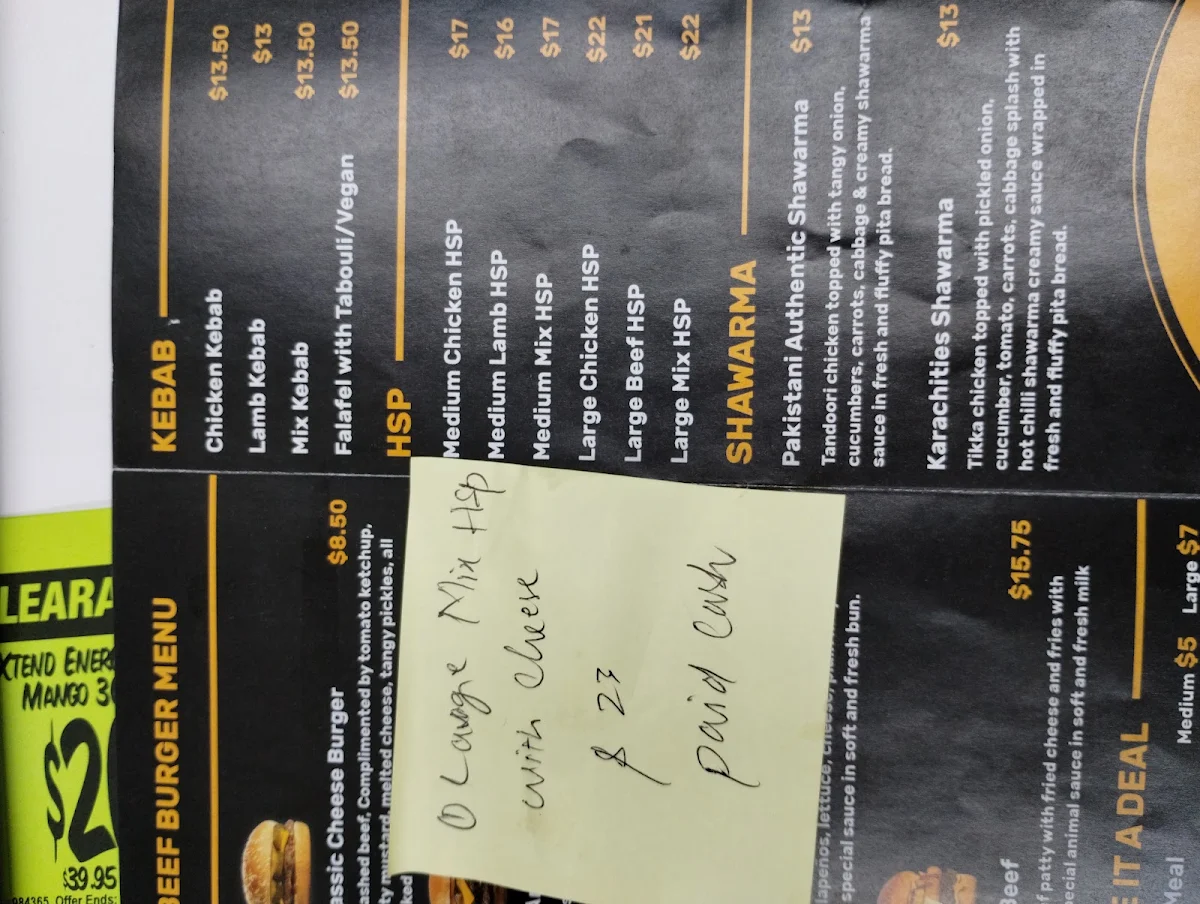 KEBAB
Chicken Kebab $13.50
Lamb Kebab $13
Mix Kebab $13.50
Falafel with Tabouli/Vegan $13.50
HSP
Medium Chicken HSP $17
Medium Lamb HSP $16
Medium Mix HSP $17
Large Chicken HSP $22
Large Beef HSP $21
Large Mix HSP $22
SHAWARMA
Pakistani Authentic Shawarma $13
Tandoori chicken topped with tangy onion,
cucumbers, carrots, cabbage & creamy shawarma
sauce in fresh and fluffy pita bread.
Karachities Shawarma $13
Tikka chicken topped with pickled onion,
cucumber, tomato, carrots, cabbage splash with
hot chilli shawarma creamy sauce wrapped in
fresh and fluffy pita bread.
BEEF BURGER MENU
assic Cheese Burger $8.50
ashed beef, Complimented by tomato ketchup,
ty mustard, melted cheese, tangy pickles, all
ked
① Lavgie Mix HSP
with cheese
$ 23
paid cash
lapenos, lettuce,
special sauce in soft and fresh bun.
Beef $15.75
f patty with fried cheese and fries with
ecial animal sauce in soft and fresh milk
E IT A DEAL
Medium $5 Large $7
Meal
LEARA
XTEND ENERG
MANGO 30
$2
$39.95
984365. Offer Ends: